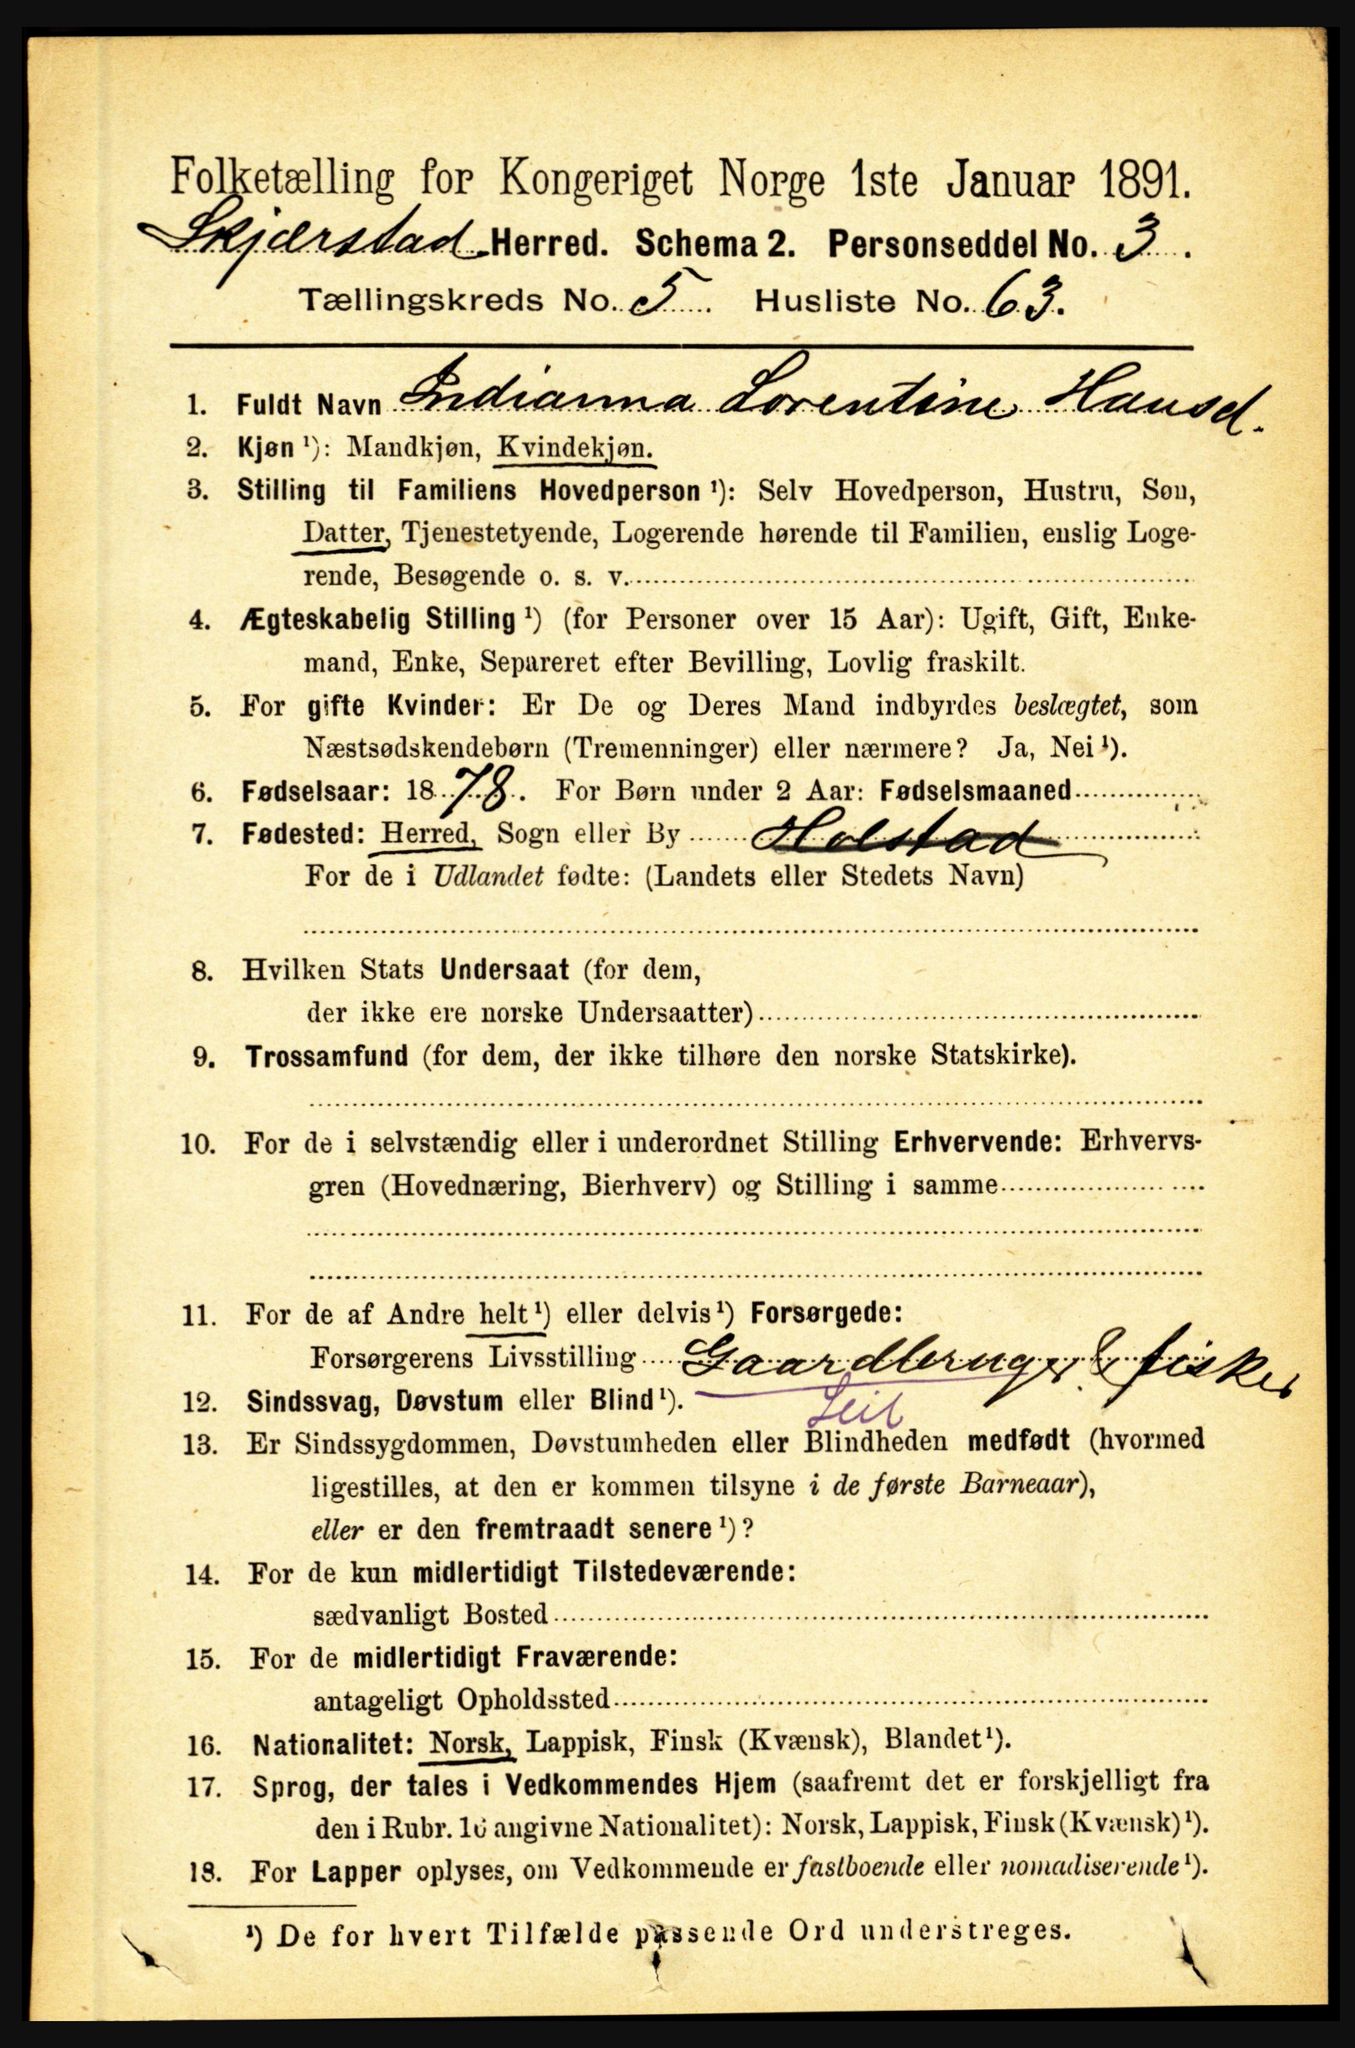 Folketælling for Kongeriget Norge 1ste Januar 1891.
Skjærstad Herred. Schema 2. Personseddel No. 3.
Tællingskreds No. 5. Husliste No. 63.
1. Fuldt Navn Indianna Lorentine Hansd.
2. Kjøn ¹): Mandkjøn, Kvindekjøn.
3. Stilling til Familiens Hovedperson ¹): Selv Hovedperson, Hustru, Søn,
Datter, Tjenestetyende, Logerende hørende til Familien, enslig Loge-
rende, Besøgende o. s. v.
4. Ægteskabelig Stilling ¹) (for Personer over 15 Aar): Ugift, Gift, Enke-
mand, Enke, Separeret efter Bevilling, Lovlig fraskilt.
5. For gifte Kvinder: Er De og Deres Mand indbyrdes beslægtet, som
Næstsødskendebørn (Tremenninger) eller nærmere? Ja, Nei ¹).
6. Fødselsaar: 1878. For Børn under 2 Aar: Fødselsmaaned
7. Fødested: Herred, Sogn eller By Holstad
For de i Udlandet fødte: (Landets eller Stedets Navn)
8. Hvilken Stats Undersaat (for dem,
der ikke ere norske Undersaatter)
9. Trossamfund (for dem, der ikke tilhøre den norske Statskirke).
10. For de i selvstændig eller i underordnet Stilling Erhvervende: Erhvervs-
gren (Hovednæring, Bierhverv) og Stilling i samme
11. For de af Andre helt ¹) eller delvis ¹) Forsørgede:
Forsørgerens Livsstilling Gaardbruger & fisker
12. Sindssvag, Døvstum eller Blind ¹). Leil
13. Er Sindssygdommen, Døvstumheden eller Blindheden medfødt (hvormed
ligestilles, at den er kommen tilsyne i de første Barneaar),
eller er den fremtraadt senere ¹)?
14. For de kun midlertidigt Tilstedeværende:
sædvanligt Bosted
15. For de midlertidigt Fraværende:
antageligt Opholdssted
16. Nationalitet: Norsk, Lappisk, Finsk (Kvænsk), Blandet ¹).
17. Sprog, der tales i Vedkommendes Hjem (saafremt det er forskjelligt fra
den i Rubr. 16 angivne Nationalitet): Norsk, Lappisk, Finsk (Kvænsk) ¹).
18. For Lapper oplyses, om Vedkommende er fastboende eller nomadiserende ¹).
¹) De for hvert Tilfælde passende Ord understreges.